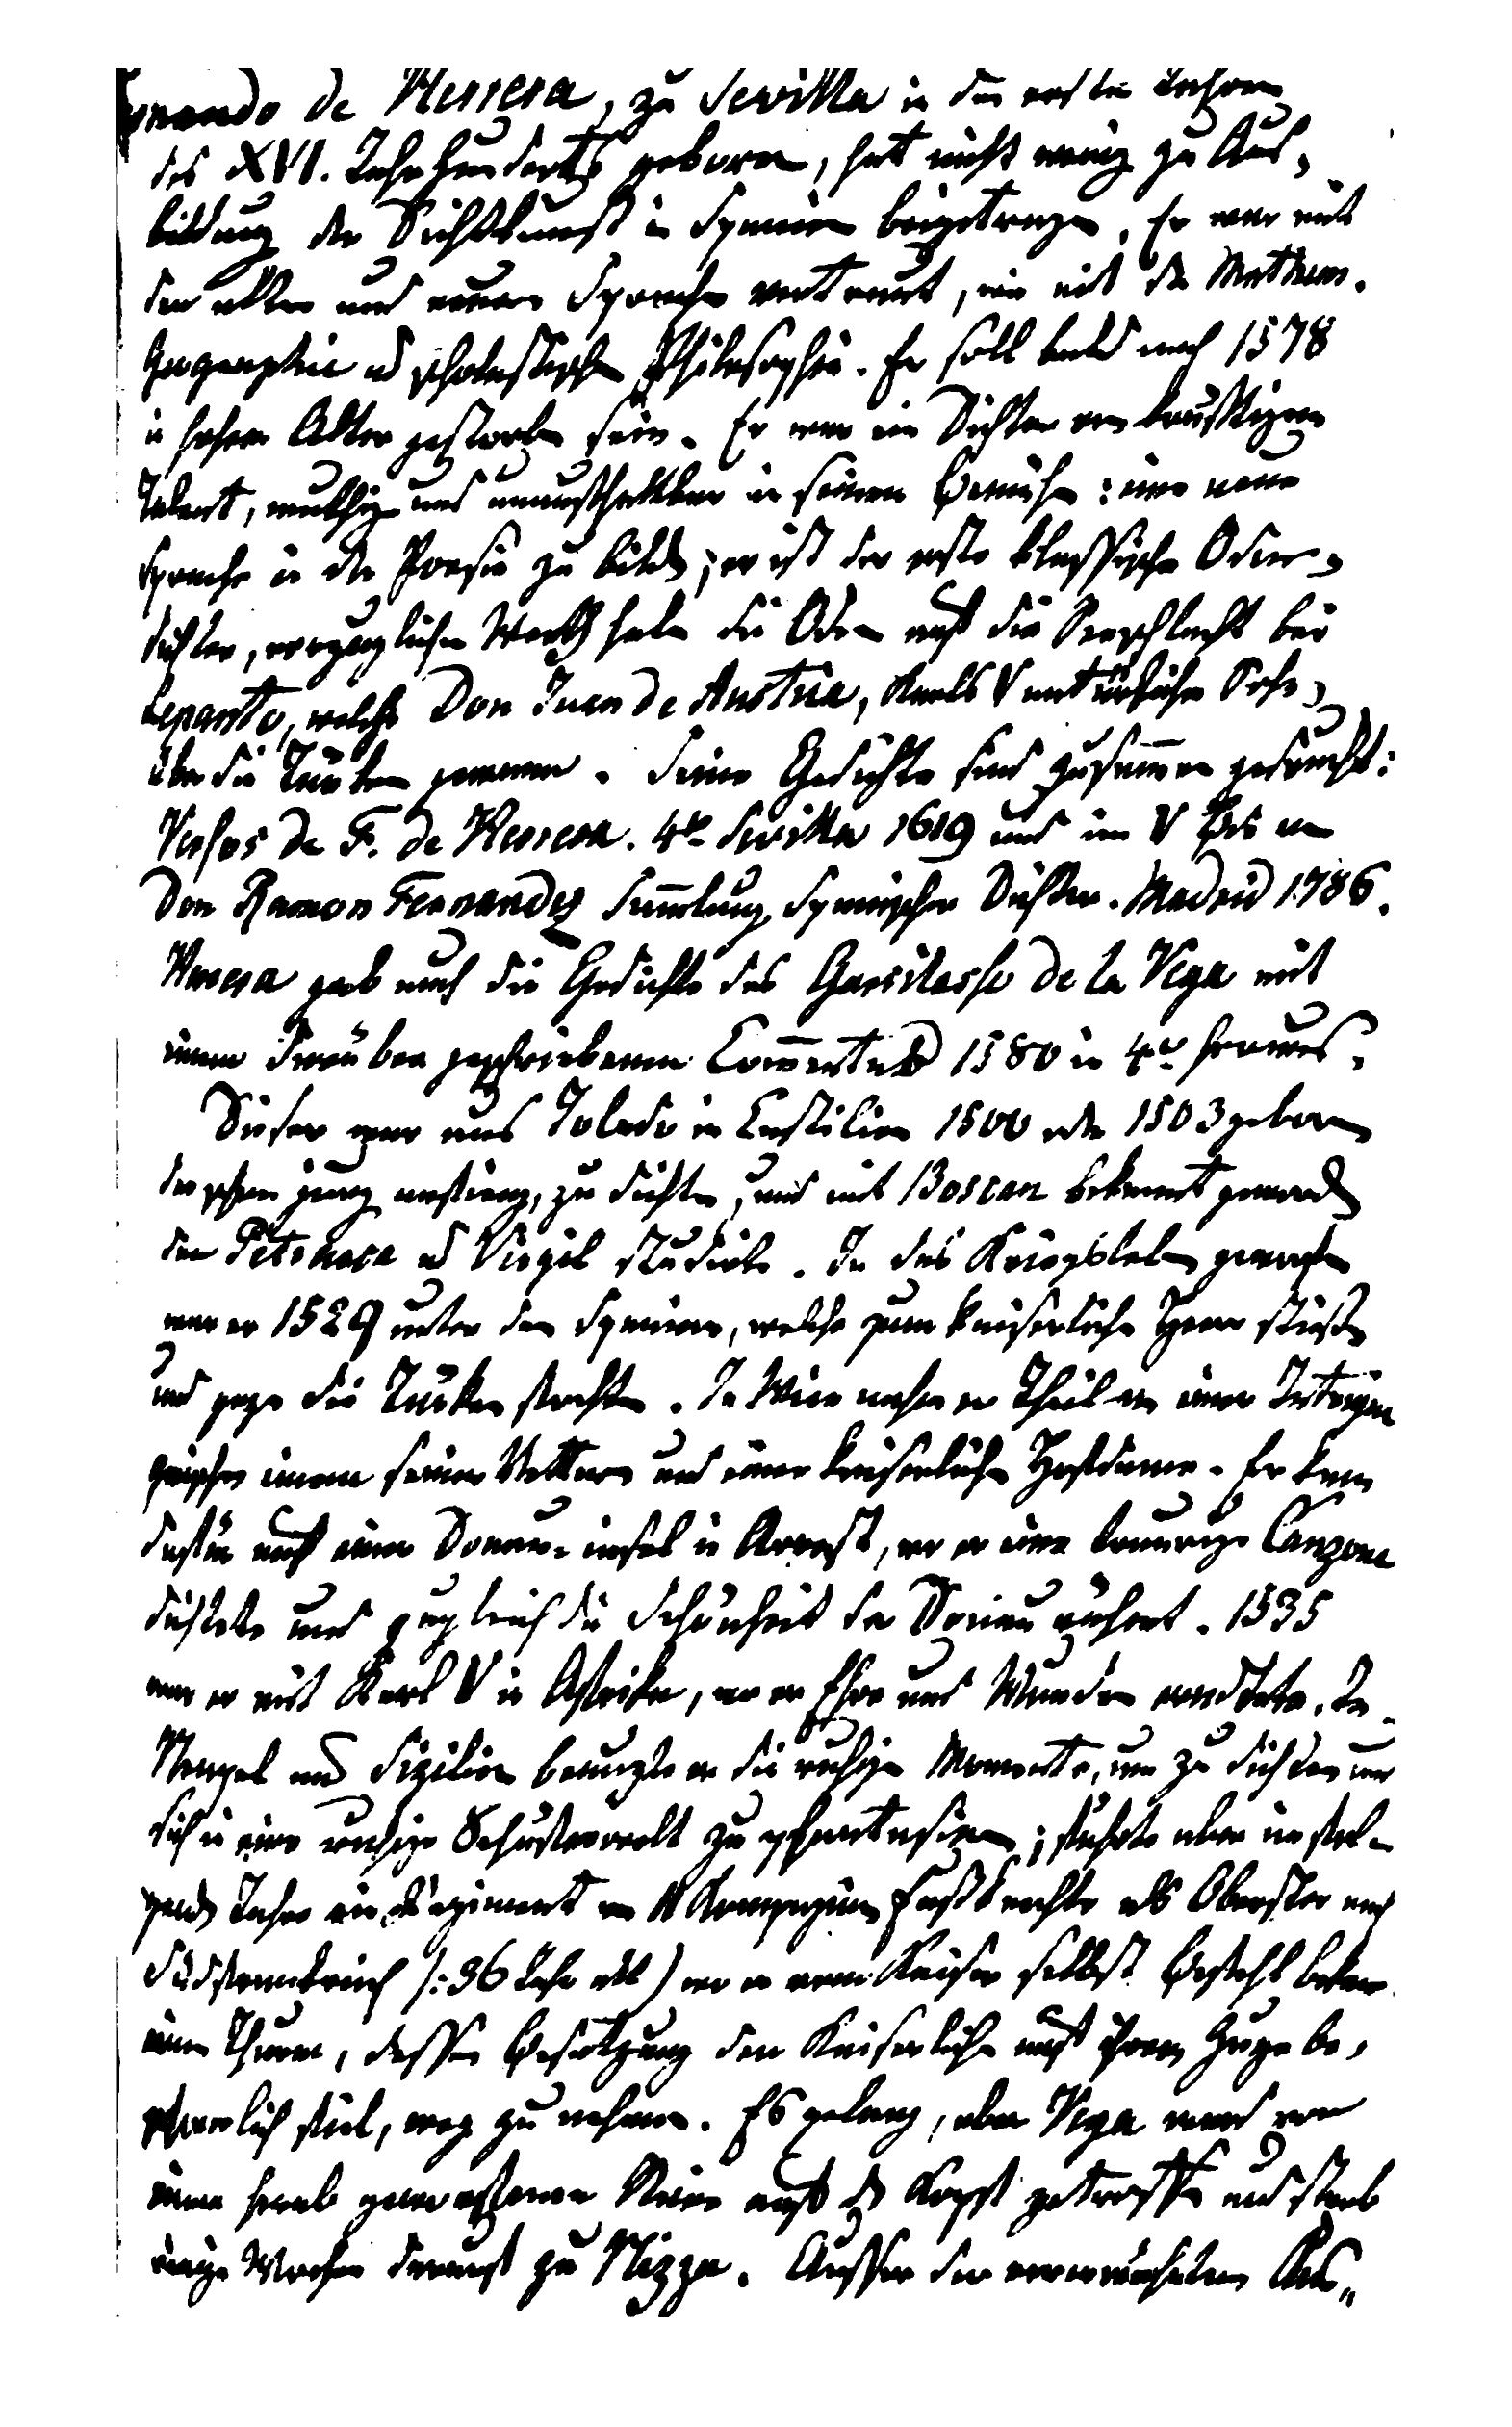 nando de Herrera, zu Sevilla in den ersten Jahren
des XVI. Jahrhunderts geboren, hat nicht wenig zu Aus-
bildung der Dichtkunst in Spanien beigetragen. Er war mit
den alten und neuern Sprachen vertraut, wie mit der Mathem.
Geographie u scholastischen Philosophie. Er soll bald nach 1578
in hohem Alter gestorben sein. Er war ein Dichter von kräftigem
Talent, muthig und unaufhaltbar in seinem Bemühen: eine neue
Sprache in der Poesie zu bilden; er ist der erste klassische Oden-
dichter, vorzüglichen Werth haben die Oden auf die Seeschlacht bei
Lepanto, welche Don Juan de Austria, Karls V natürlicher Sohn,
über die Türken gewann. Seine Gedichte sind zusammen gedruckt:
Versos de F. de Herrera. 4to Sevilla 1619 und im V Bd von
Don Ramon Fernandez Sammlung spanischer Dichter. Madrid 1786.
Herrera gab auch die Gedichte des Garsilasso de la Vega mit
einem darüber geschriebenen Commentar 1580 in 4to heraus.
Dieser war aus Toledo in Castilien 1500 oder 1503 geboren
der schon jung anfieng, zu dichten, und mit Boscan bekannt geword
den Petrarca u Virgil studirte. In das Kriegsleben geworfen
war er 1529 unter den Spaniern, welche zum kaiserlichen Heer stießen
und gegen die Türken fochten. In Wien nahm er Theil an einer Intrigue
zwischen einem seiner Vettern und einer kaiserlichen Hofdame. Er kam
dafür auf eine Donau-insel in Arrest, wo er eine traurige Canzone
dichtete und zugleich die Schönheit der Donau rühmt. 1535
war er mit Karl V in Afrika, wo er Ehre und Wunden erndtete. In
Neapel und Sizilien benuzte er die ruhigen Momente, um zu dichten und
sich in eine ruhige Schäferwelt zu phantasiren; führte aber im fol-
genden Jahre ein Regiment von 11 Kompagnien Fußknechte als Oberster nach
Südfrankreich (:36 Jahr alt) wo er vom Kaiser selbst Befehl bekam
einen Thurm, dessen Besatzung den Kaiserlichen auf ihrem Zuge be-
schwerlich fiel, weg zu nehmen. Es gelang, aber Vega ward von
einem herab geworfenen Steine auf den Kopf getroffen und starb
einige Wochen darauf zu Nizza. Ausser der vorerwähnten Aus-